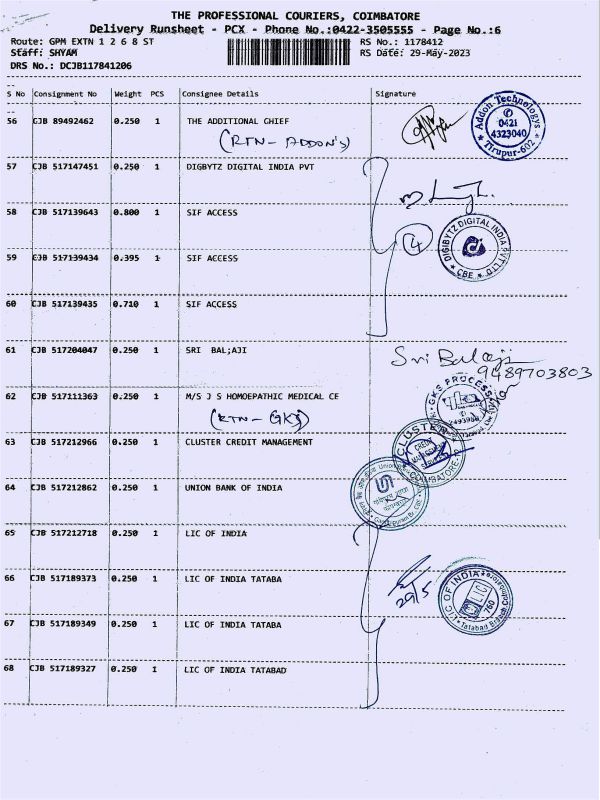 THE PROFESSIONAL COURIERS, COIMBATORE
Delivery Runsheet - PCX - Phone No.:0422-3505555 - Page No.:6
Route: GPM EXTN 1 2 6 8 ST RS No.: 1178412
Staff: SHYAM RS Date: 29-May-2023
DRS No.: DCJB117841206
S No Consignment No Weight PCS Consignee Details Signature
56 CJB 89492462 0.250 1 THE ADDITIONAL CHIEF
(RTN- ADDON's)
Addon Technologys
0421
4323040
Tirupur-602
57 CJB 517147451 0.250 1 DIGBYTZ DIGITAL INDIA PVT
58 CJB 517139643 0.800 1 SIF ACCESS
4
DIGIBYTZ DIGITAL INDIA PVT LTD
CBE
59 CJB 517139434 0.395 1 SIF ACCESS
60 CJB 517139435 0.710 1 SIF ACCESS
61 CJB 517204047 0.250 1 SRI BAL;AJI
Sri Balaaji
9489703803
62 CJB 517111363 0.250 1 M/S J S HOMOEPATHIC MEDICAL CE
(RTN- GKS)
GKS PROCESS
63 CJB 517212966 0.250 1 CLUSTER CREDIT MANAGEMENT
CLUSTER
CREDIT
MANAGEMENT
COIMBATORE
64 CJB 517212862 0.250 1 UNION BANK OF INDIA
65 CJB 517212718 0.250 1 LIC OF INDIA
66 CJB 517189373 0.250 1 LIC OF INDIA TATABA
29/5
LIC OF INDIA
LIC
760
Tatabad Branch
67 CJB 517189349 0.250 1 LIC OF INDIA TATABA
68 CJB 517189327 0.250 1 LIC OF INDIA TATABAD